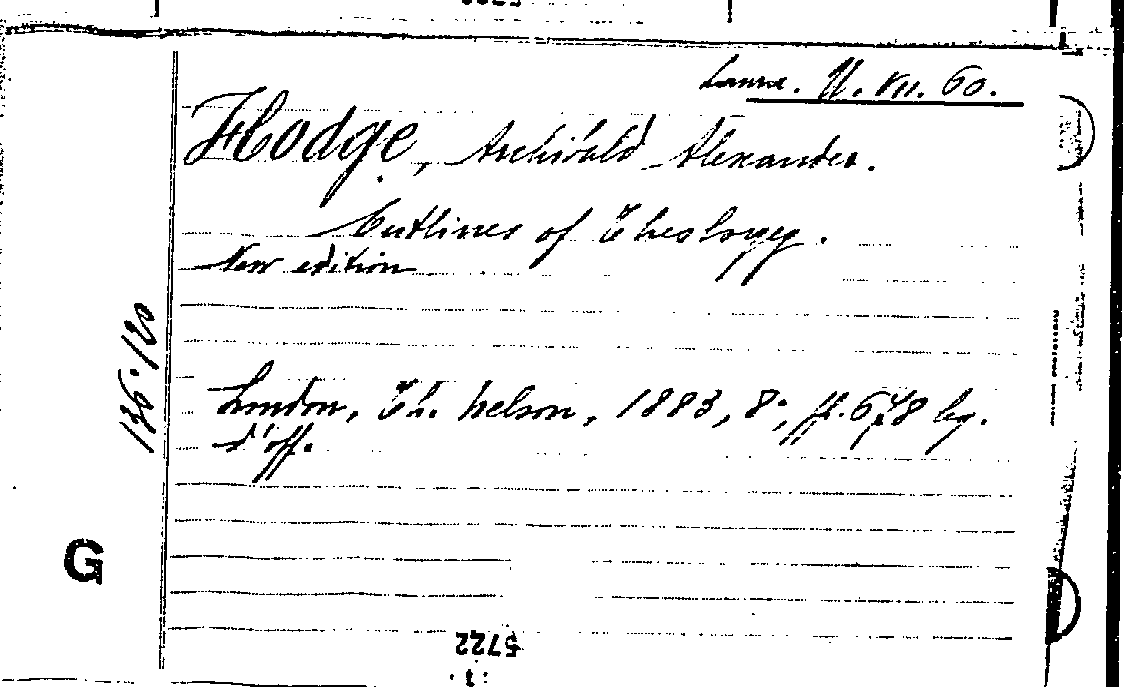 U. VII. 60.
Hodge, Archibald Alexander.
Outlines of Theology.
New edition
London, Th. Nelson, 1883, 8°, pp. 678 leg.
d'off.
136.120
G
5722